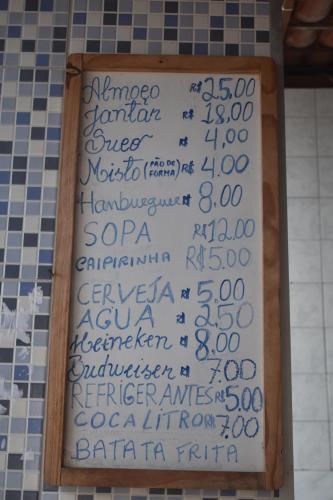 Almoço R$ 25,00
Jantar R$ 18,00
Suco R$ 4,00
Misto (PÃO DE FORMA) R$ 4,00
Hamburguer R$ 8,00
SOPA R$ 12,00
CAIPIRINHA R$ 5,00
CERVEJA R$ 5,00
AGUA R$ 2,50
Heineken R$ 8,00
Budweiser R$ 7,00
REFRIGERANTES R$ 5,00
COCA LITRO R$ 7,00
BATATA FRITA